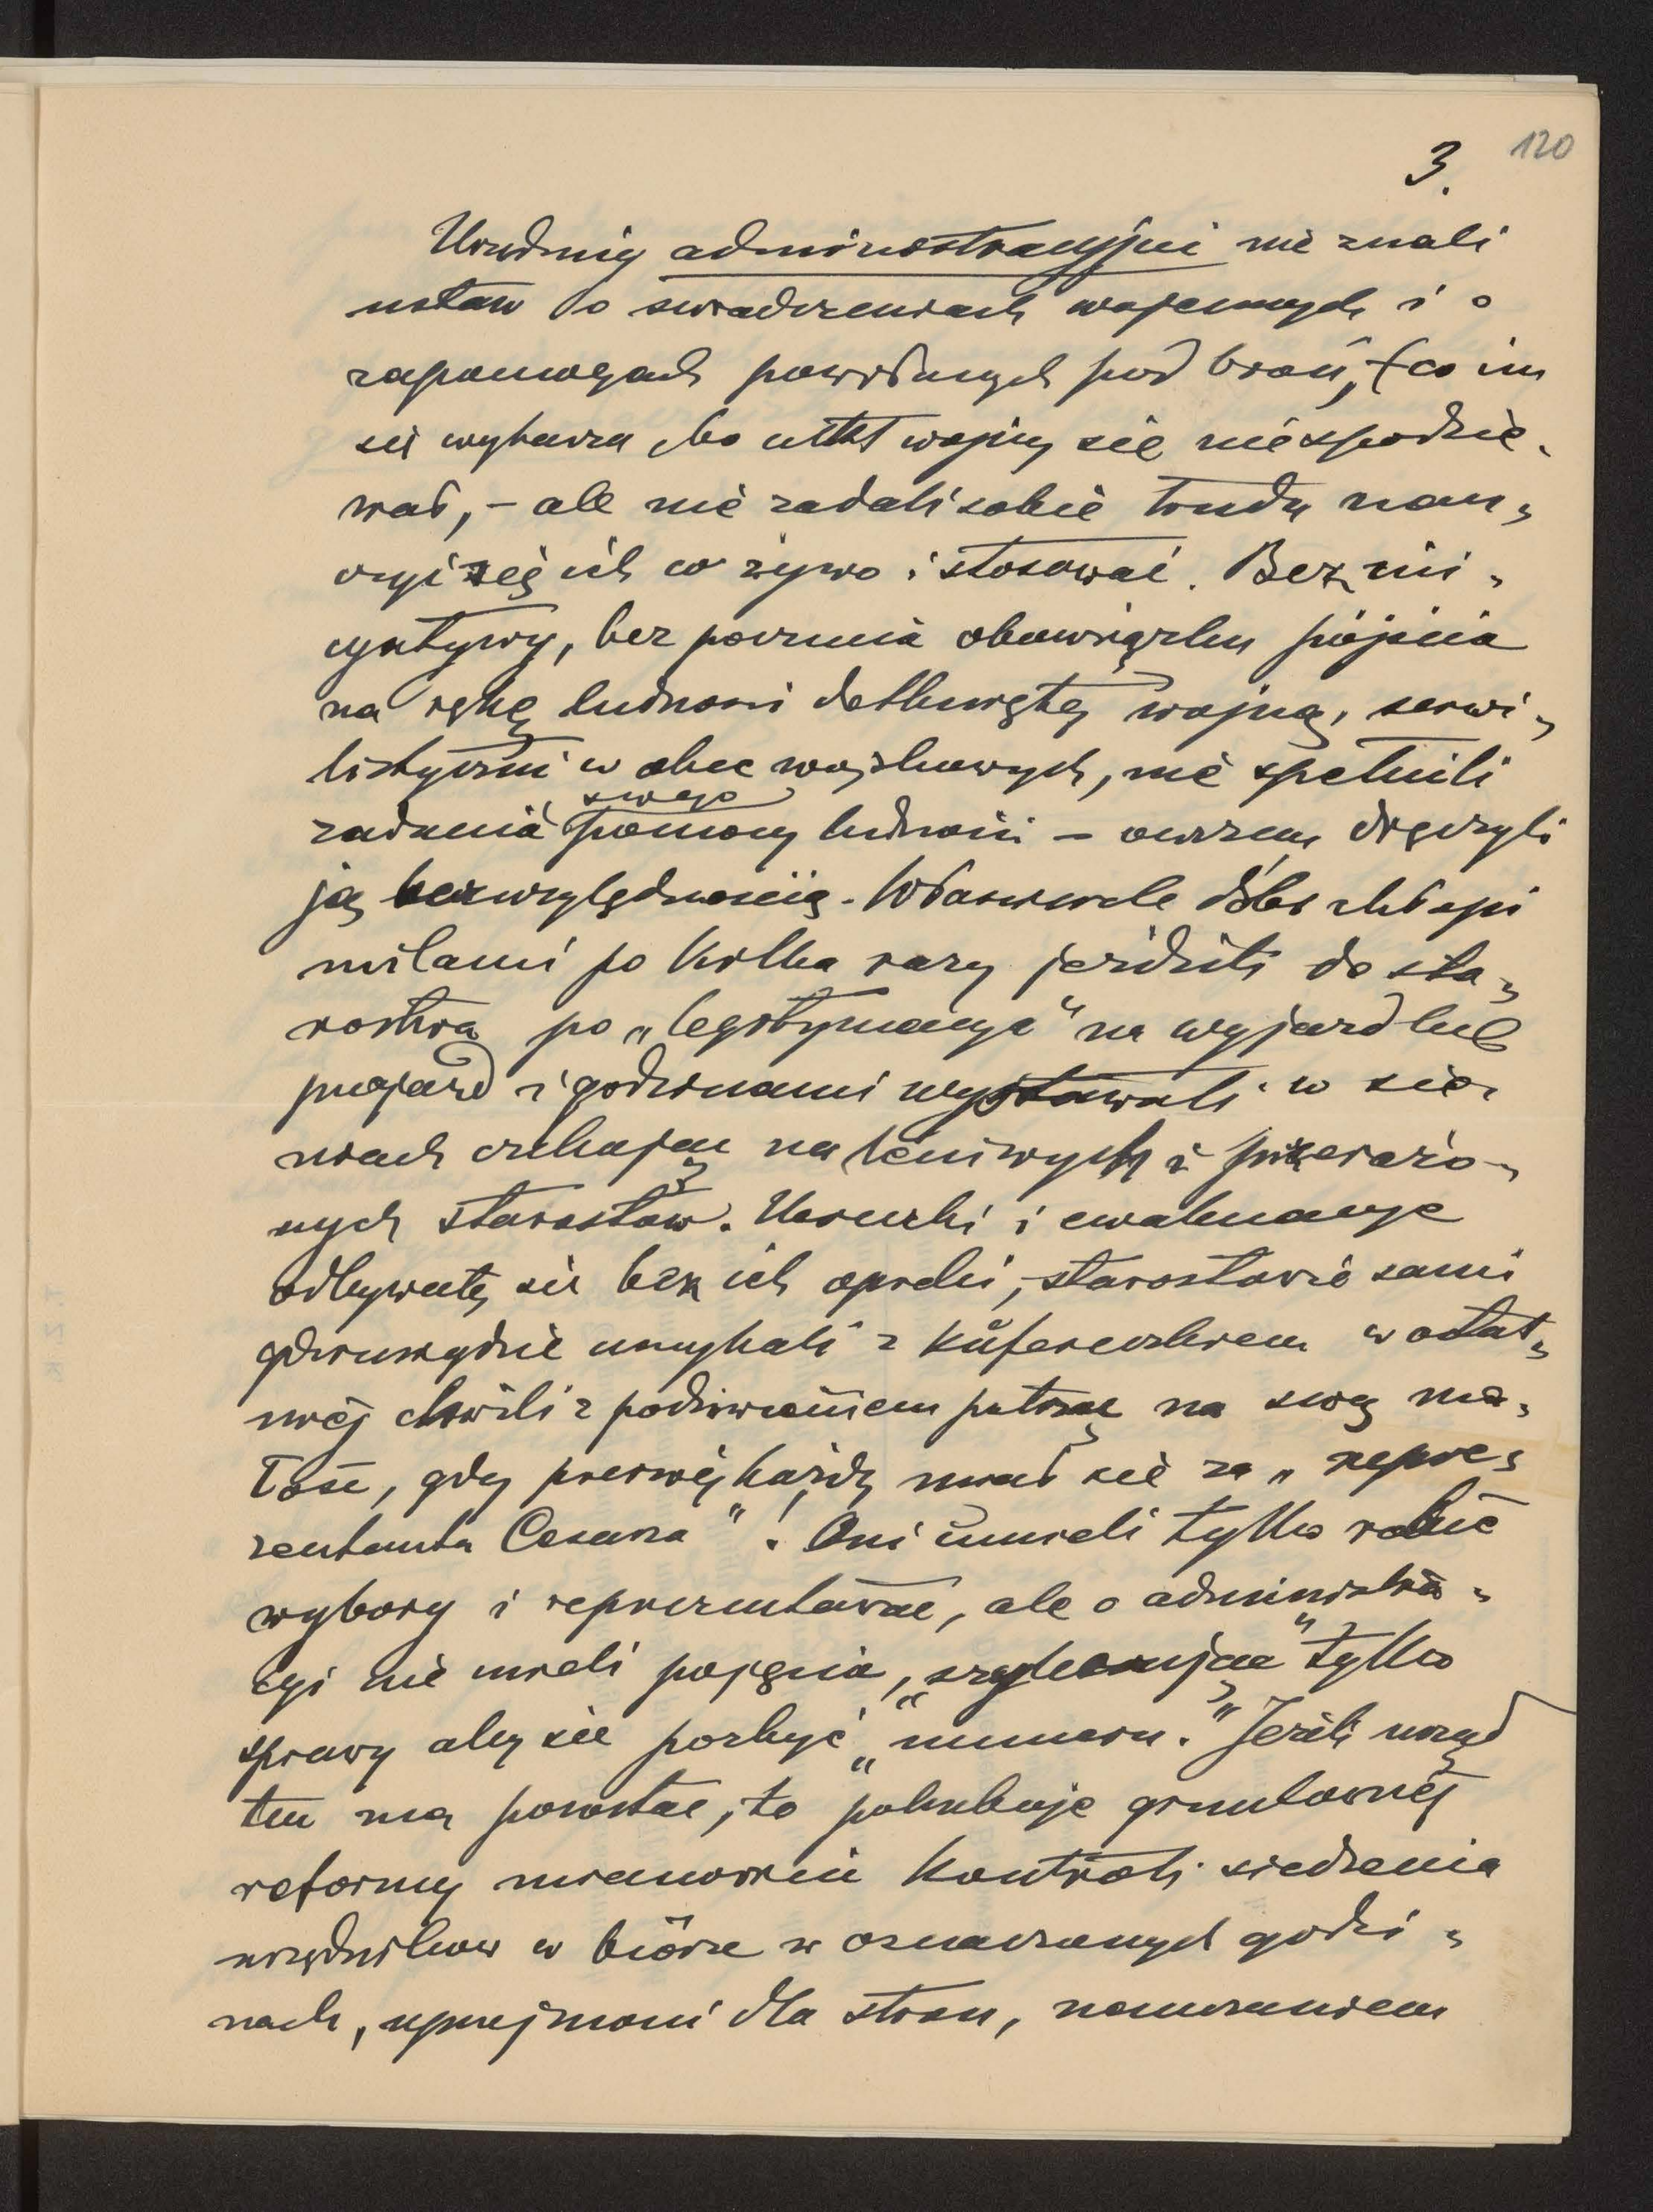 3. 120
Urzędnicy administracyjni nie znali
ustaw o świadczeniach wojennych i o
zapomogach powołanych pod broń, (co im
się wybacza bo nikt wojny się nie spodzie-
wał, – ale nie zadali sobie trudu nau-
czyć się ich co żywo i stosować. Bez ini-
cyatywy, bez poczucia obowiązku pójścia
na rękę ludności dotkniętej wojną, serwi-
listyczni w obec wojskowych, nie spełnili
zadania swego pomocy ludności – owszem dręczyli
ją bezwzględnością. chłopi
milami po kilka razy jeździli do sta-
rostwa po „legitymacye" na wyjazd lub
przejazd i godzinami wystawali w sie-
niach czekając na leniwych i przerażo-
nych starostów. Ucieczki i ewakuacye
odbywały się bez ich opieki, starostowie sami
gdzieniegdzie umykali z kufereczkiem w ostat-
niej chwili z podziwieniem patrząc na swą ma-
łość, gdy pierwej każdy miał się za „repre-
zentanta Cesarza"! Oni umieli tylko robić
wybory i reprezentować, ale o administra-
cyi nie mieli pojęcia, tylko
sprawy aby się pozbyć „numeru." Jeżeli urząd
ten ma pozostać, to potrzebuje gruntownej
reformy mianowicie kontroli siedzenia
urzędników w biórze w oznaczonych godzi-
nach, uprzejmości dla stron,